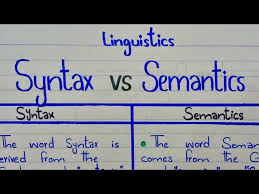 Linguistics
Syntax vs Semantics
Syntax Semantics
The word Syntax is
derived from the
The word Seman
comes from the G